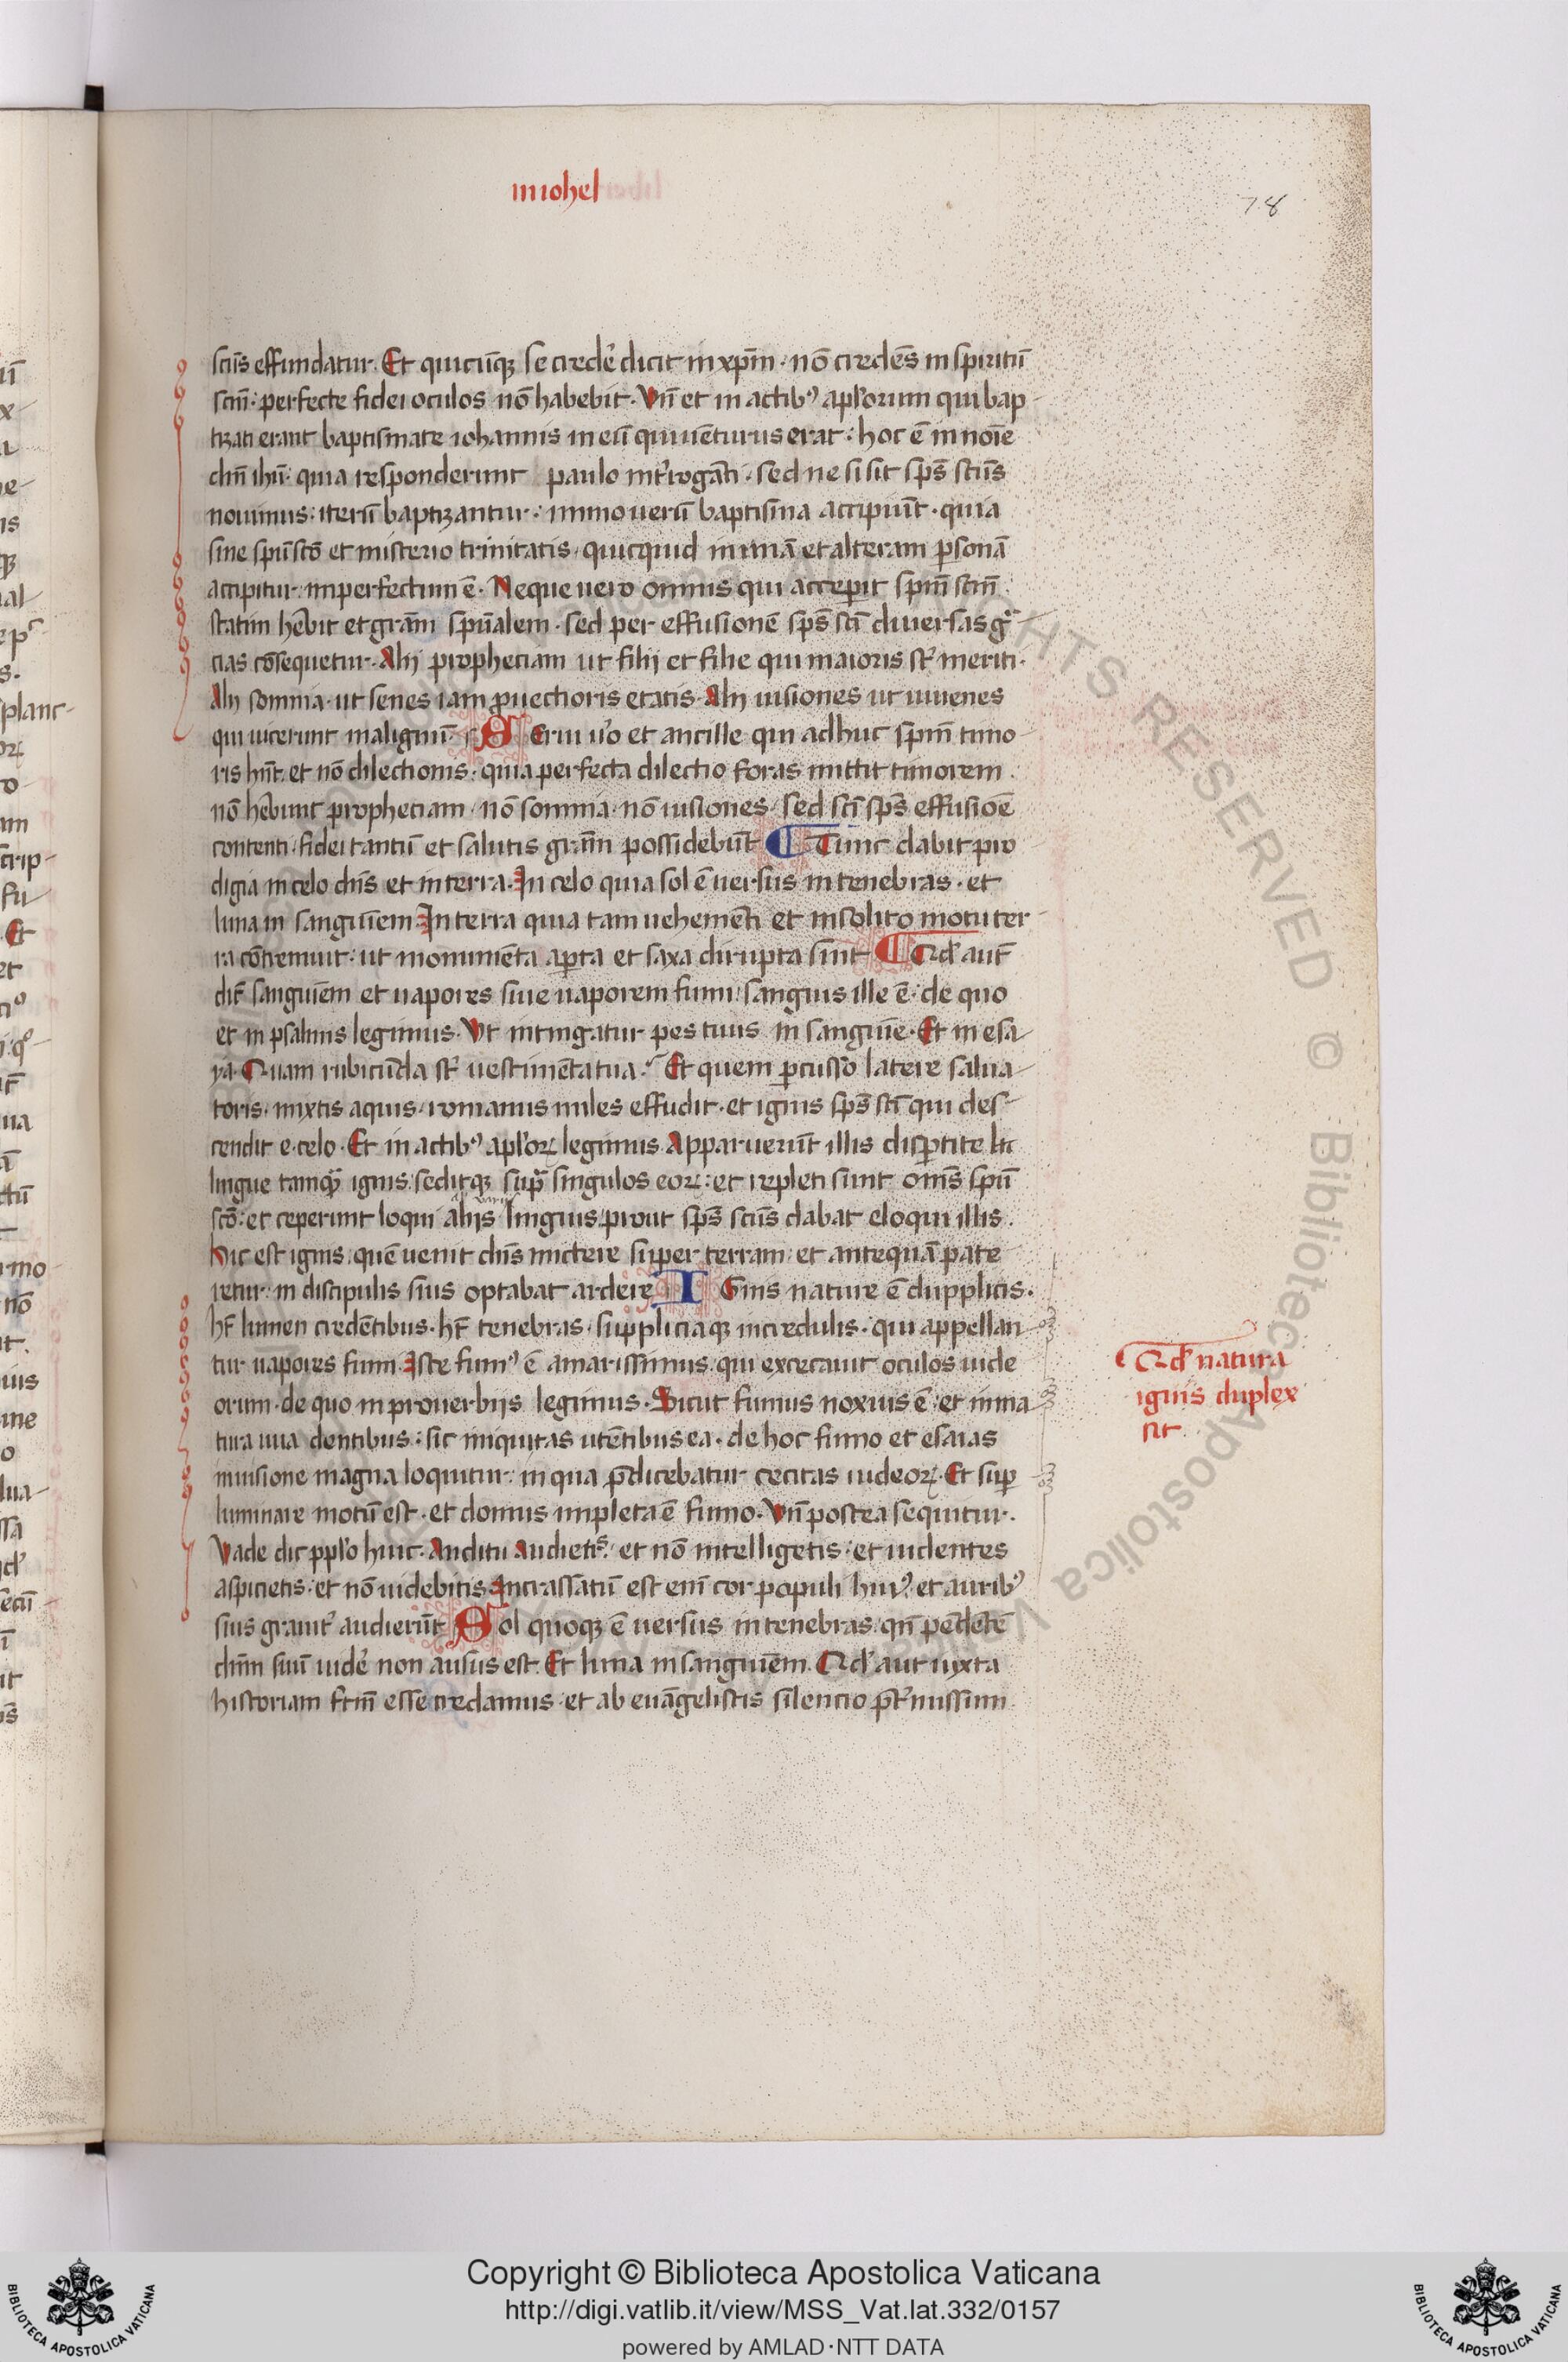 in iohel
78
scūs effundatur. Et quicūqꝫ se credẻ dicit in xp̄m. nō credēs in spiritū
scm̄: perfecte fidei oculos nō habebit. Vn̄ et in actibꝰ apl'orum qui bap-
tizati erant baptismate iohannis in eū qui uēturus erat: hoc ē in noīe
dn̄i ihū: quia responderunt paulo int'rogāti. sed ne si sit sps̄ scūs
nouimus: iterū baptizantur: immo uerū baptisma accipiūt. quia
sine spū scō et misterio trinitatis, quicquid in unā et alteram ꝑsonā
accipitur: imperfectum ē. Neque uero omnis qui acceperit spm̄ scm̄.
statim hēbit et grām spūalem. sed per effusionē sps̄ scī diuersas gr̄a-
cias cōsequetur. Alij propheciam ut filij et filie qui maioris st' meriti.
Alij somnia. ut senes iam ꝓuectioris etatis. Alij uisiones ut iuuenes
qui uicerunt malignū. Serui u'o et ancille qui adhuc spm̄ timo-
ris hn̄t. et nō dilectionis. quia perfecta dilectio foras mittit timorem.
nō hēbunt propheciam. nō somnia. nō uisiones. sed scī sps̄ effusiōe
contenti: fidei tantū et salutis grām possidebūt. Tunc dabit pro
digia in celo dn̄s et in terra. In celo quia sol ē uersus in tenebras. et
luna in sanguinem. In terra quia tam uehemēti et insolito motu ter-
ra cōtremuit: ut monumēta aꝑta et saxa dirupta sint. Qd' aut̄
dic̄ sanguinem et uapores siue uaporem fumi: sanguis ille ē: de quo
et in psalmis legimus. Vt intingatur pes tuus in sanguine. Et in esa-
ya. Quam rubicūda st' uestimēta tua. Et quem ꝑcusso latere salua-
toris. mixtis aquis. romanus miles effudit. et ignis sps̄ scī qui des-
cendit e celo. Et in actibꝰ apl'oꝝ legimus. Apparuerūt illis disꝑtite
lingue tamq̄ ignis: seditqꝫ sup̄ singulos eoꝝ: et repleti sunt om̄s spū
scō: et ceperunt loqui alijs linguis. prout sps̄ scūs dabat eloqui illis.
Hic est ignis. quē uenit dn̄s mictere super terram: et antequā pate
retur: in discipulis suis optabat ardere. Ignis nature ē dupplicis.
ht̄ lumen credētibus. ht̄ tenebras. suppliciaqꝫ incredulis. qui appellan-
tur uapores fumi. Iste fumꝰ ē amarissimus. qui excecauit oculos iude
orum. de quo in prouerbijs legimus. Sicut fumus noxius ē: et inma
tura uua dentibus: sic iniquitas utētibus ea. de hoc fumo et esaias
in uisione magna loquitur: in qua p̄dicebatur cecitas iudeoꝝ. Et suꝑ
luminare motū est. et domus impleta ē fumo. Vn̄ postea sequitur.
Vade dic ppl'o huic. Auditu audietis: et nō intelligetis: et uidentes
aspicietis. et nō uidebitis. Incrassatū est enī cor populi huiꝰ. et auribꝰ
suis grauit' audierūt. Sol quoqꝫ ē uersus in tenebras: qn̄ pēdētē
dn̄m suū uidẻ non ausus est. Et luna in sanguinem. Qd' aut iuxta
historiam fcm̄ esse credamus. et ab euāgelistis silencio p̄t'missum
Qd' natura
ignis duplex
sit.
Copyright © Biblioteca Apostolica Vaticana
http://digi.vatlib.it/view/MSS_Vat.lat.332/0157
powered by AMLAD·NTT DATA
BIBLIOTECA APOSTOLICA VATICANA
BIBLIOTECA APOSTOLICA VATICANA